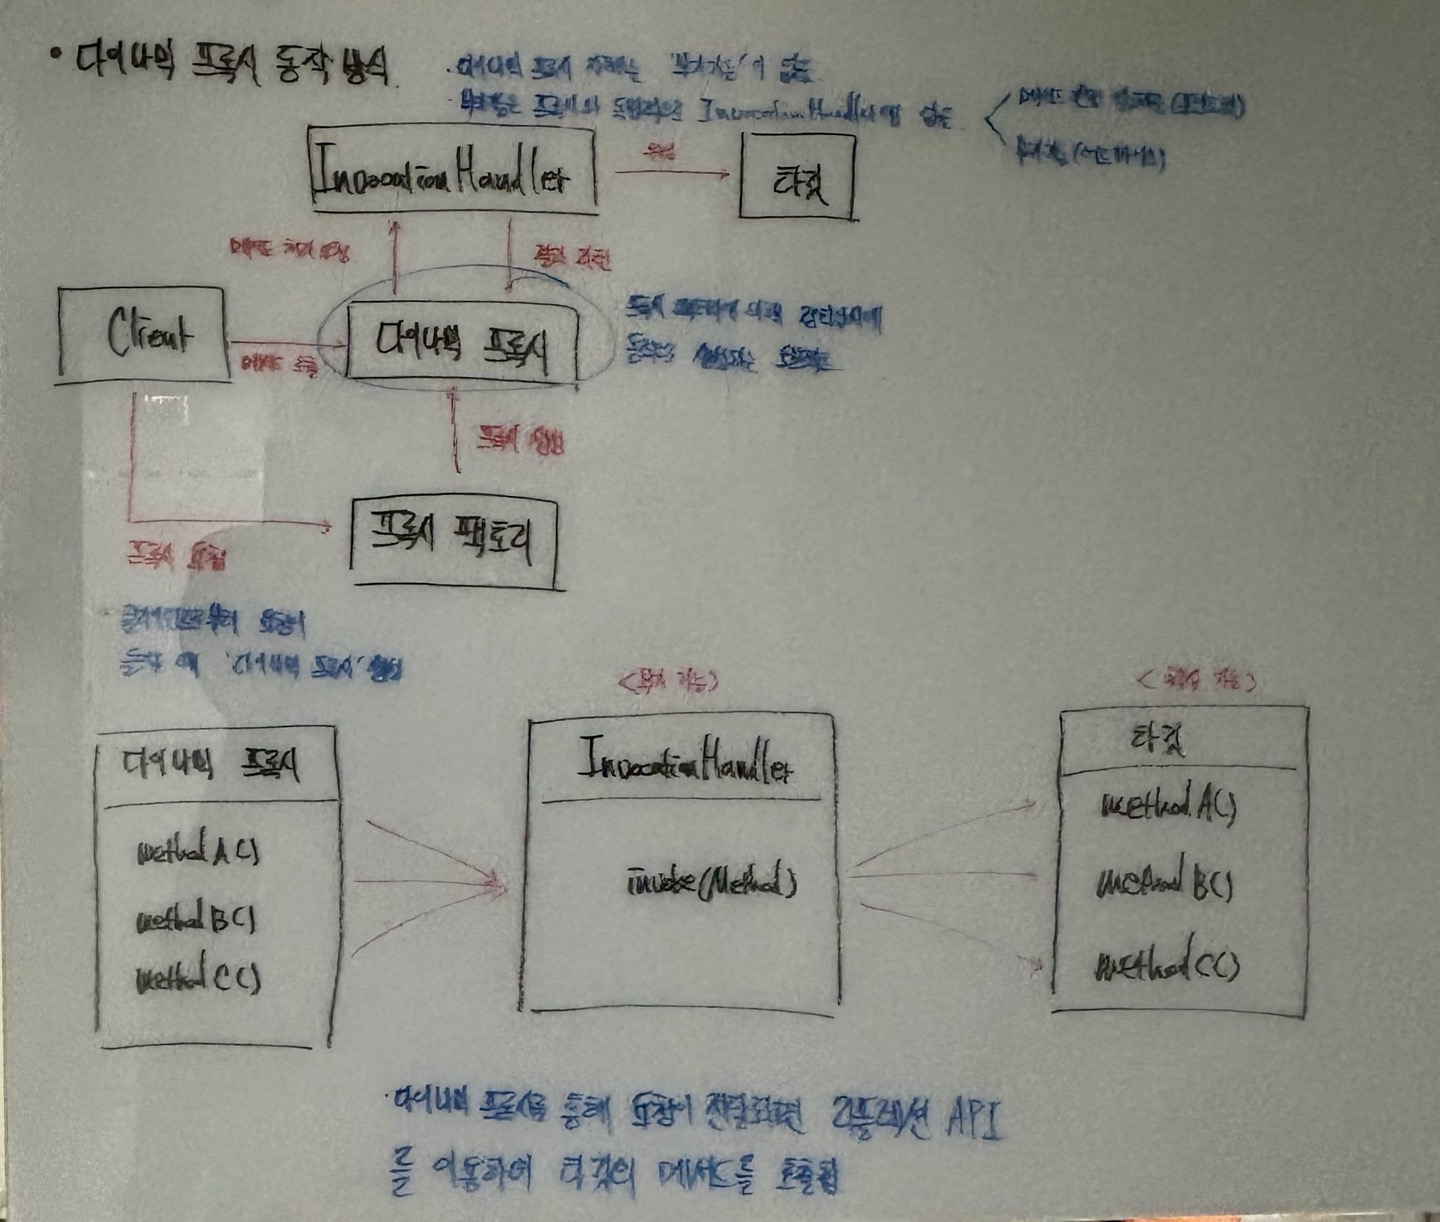 • 다이나믹 프록시 동작 방식
· 다이나믹 프록시 자체는 '부가기능'이 없음
부가기능은 프록시와 독립적인 InvocationHandler에 있음
부가기능(어드바이스)
InvocationHandler
위임
타깃
메서드 처리 요청
결과 리턴
Client
메서드 호출
다이나믹 프록시
프록시 팩토리에 의해 런타임시에
동적으로 생성되는 오브젝트
프록시 생성
프록시 팩토리
프록시 요청
클라이언트로부터 요청이
올 때 '다이나믹 프록시' 생성
<부가 기능>
<핵심 기능>
다이나믹 프록시
methodA()
methodB()
methodC()
InvocationHandler
invoke(Method)
타깃
methodA()
methodB()
methodC()
· 다이나믹 프록시를 통해 요청이 전달되면 리플렉션 API
를 이용하여 타깃의 메서드를 호출함